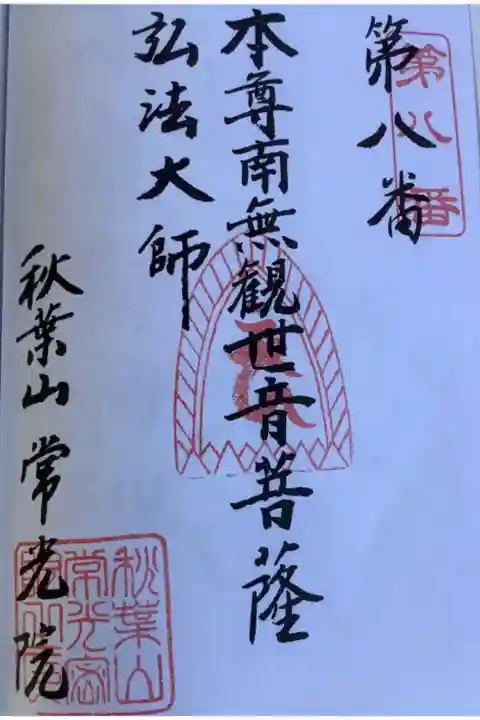 第八番
第八番
本尊南無観世音菩薩
弘法大師
秋葉山常光院
秋葉山
常光密